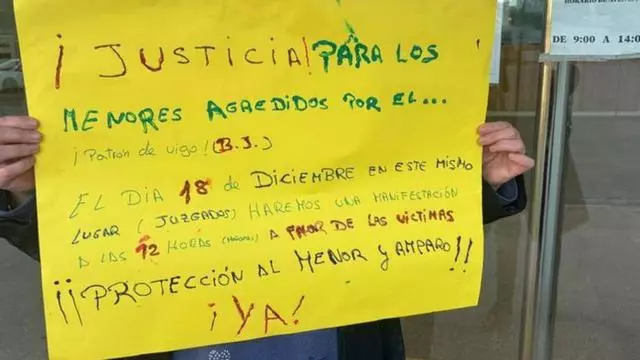 ¡JUSTICIA! PARA LOS
MENORES AGREDIDOS POR EL...
¡Patrón de vigo! (B.J.)
EL DÍA 18 de DICIEMBRE EN ESTE MISMO
LUGAR (JUZGADOS) HAREMOS UNA MANIFESTACIÓN
A LAS 12 HORAS A FAVOR DE LAS VÍCTIMAS
¡¡PROTECCIÓN AL MENOR y AMPARO!!
¡YA!
DE 9:00 A 14:0